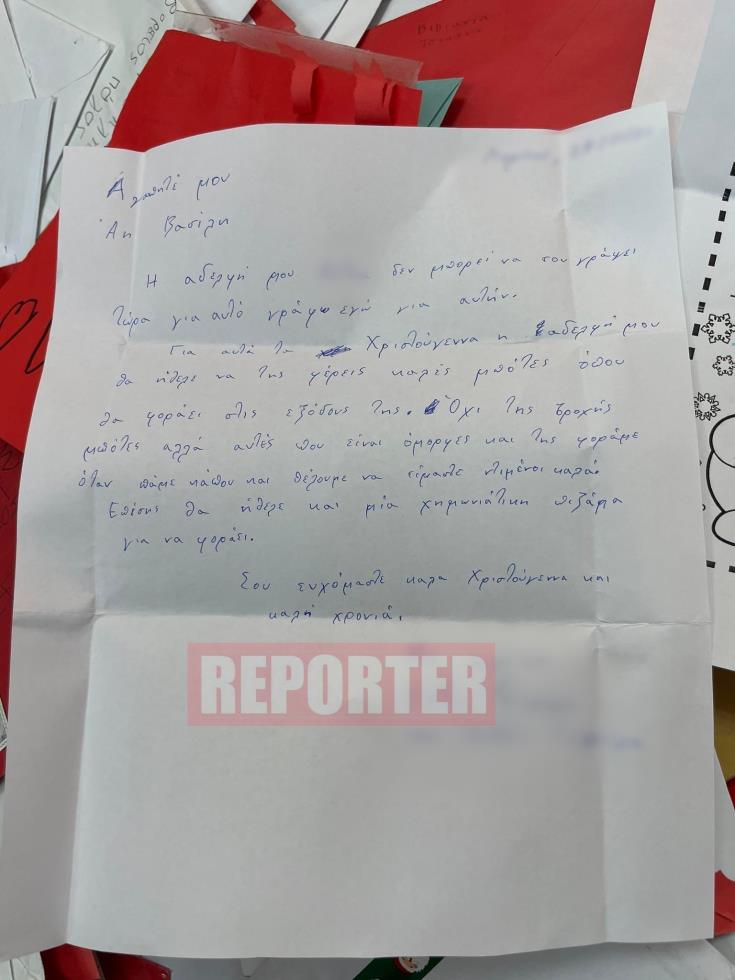 Βιβλιοθ
Αγαπητέ μου
Άη Βασίλη
Η αδερφή μου δεν μπορεί να σου γράψει
τώρα για αυτό γράφω εγώ για αυτήν.
Για αυτά τα Χριστούγεννα η αδερφή μου
θα ήθελε να της φέρεις καλές μπότες όπου
θα φοράει στις εξόδους της. Όχι της βροχής
μπότες αλλά αυτές που είναι όμορφες και της φοράμε
όταν πάμε κάπου και θέλουμε να είμαστε ντιμένοι καλά.
Επίσης θα ήθελε και μία χημωνιάτικη πιζάμα
για να φοράει.
Σου ευχόμαστε καλα Χριστούγεννα και
καλή χρονιά.
REPORTER